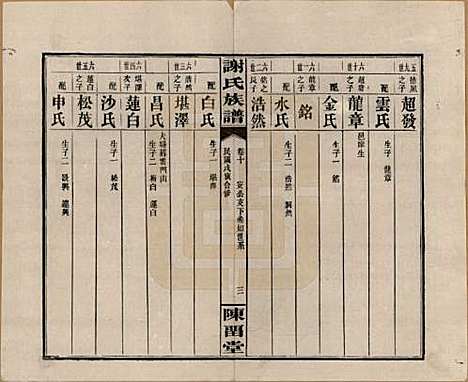 五九世
超發
配
雲氏
生子一 龍章
六十世
超發
之子
龍章
邑庠生
配
金氏
生子一 銘
六一世
龍章
之子
銘
配
水氏
生子二 浩然
六二世
銘之
長子
浩然
配
白氏
生子一 堪澤
謝氏族譜
卷十
民國戊寅合修
三
陳留堂
六三世
浩然
之子
堪澤
配
昌氏
生子二 梅白 蓮白
六四世
堪澤
次子
蓮白
配
沙氏
生子一 松茂
六五世
蓮白
之子
松茂
配
申氏
生子二